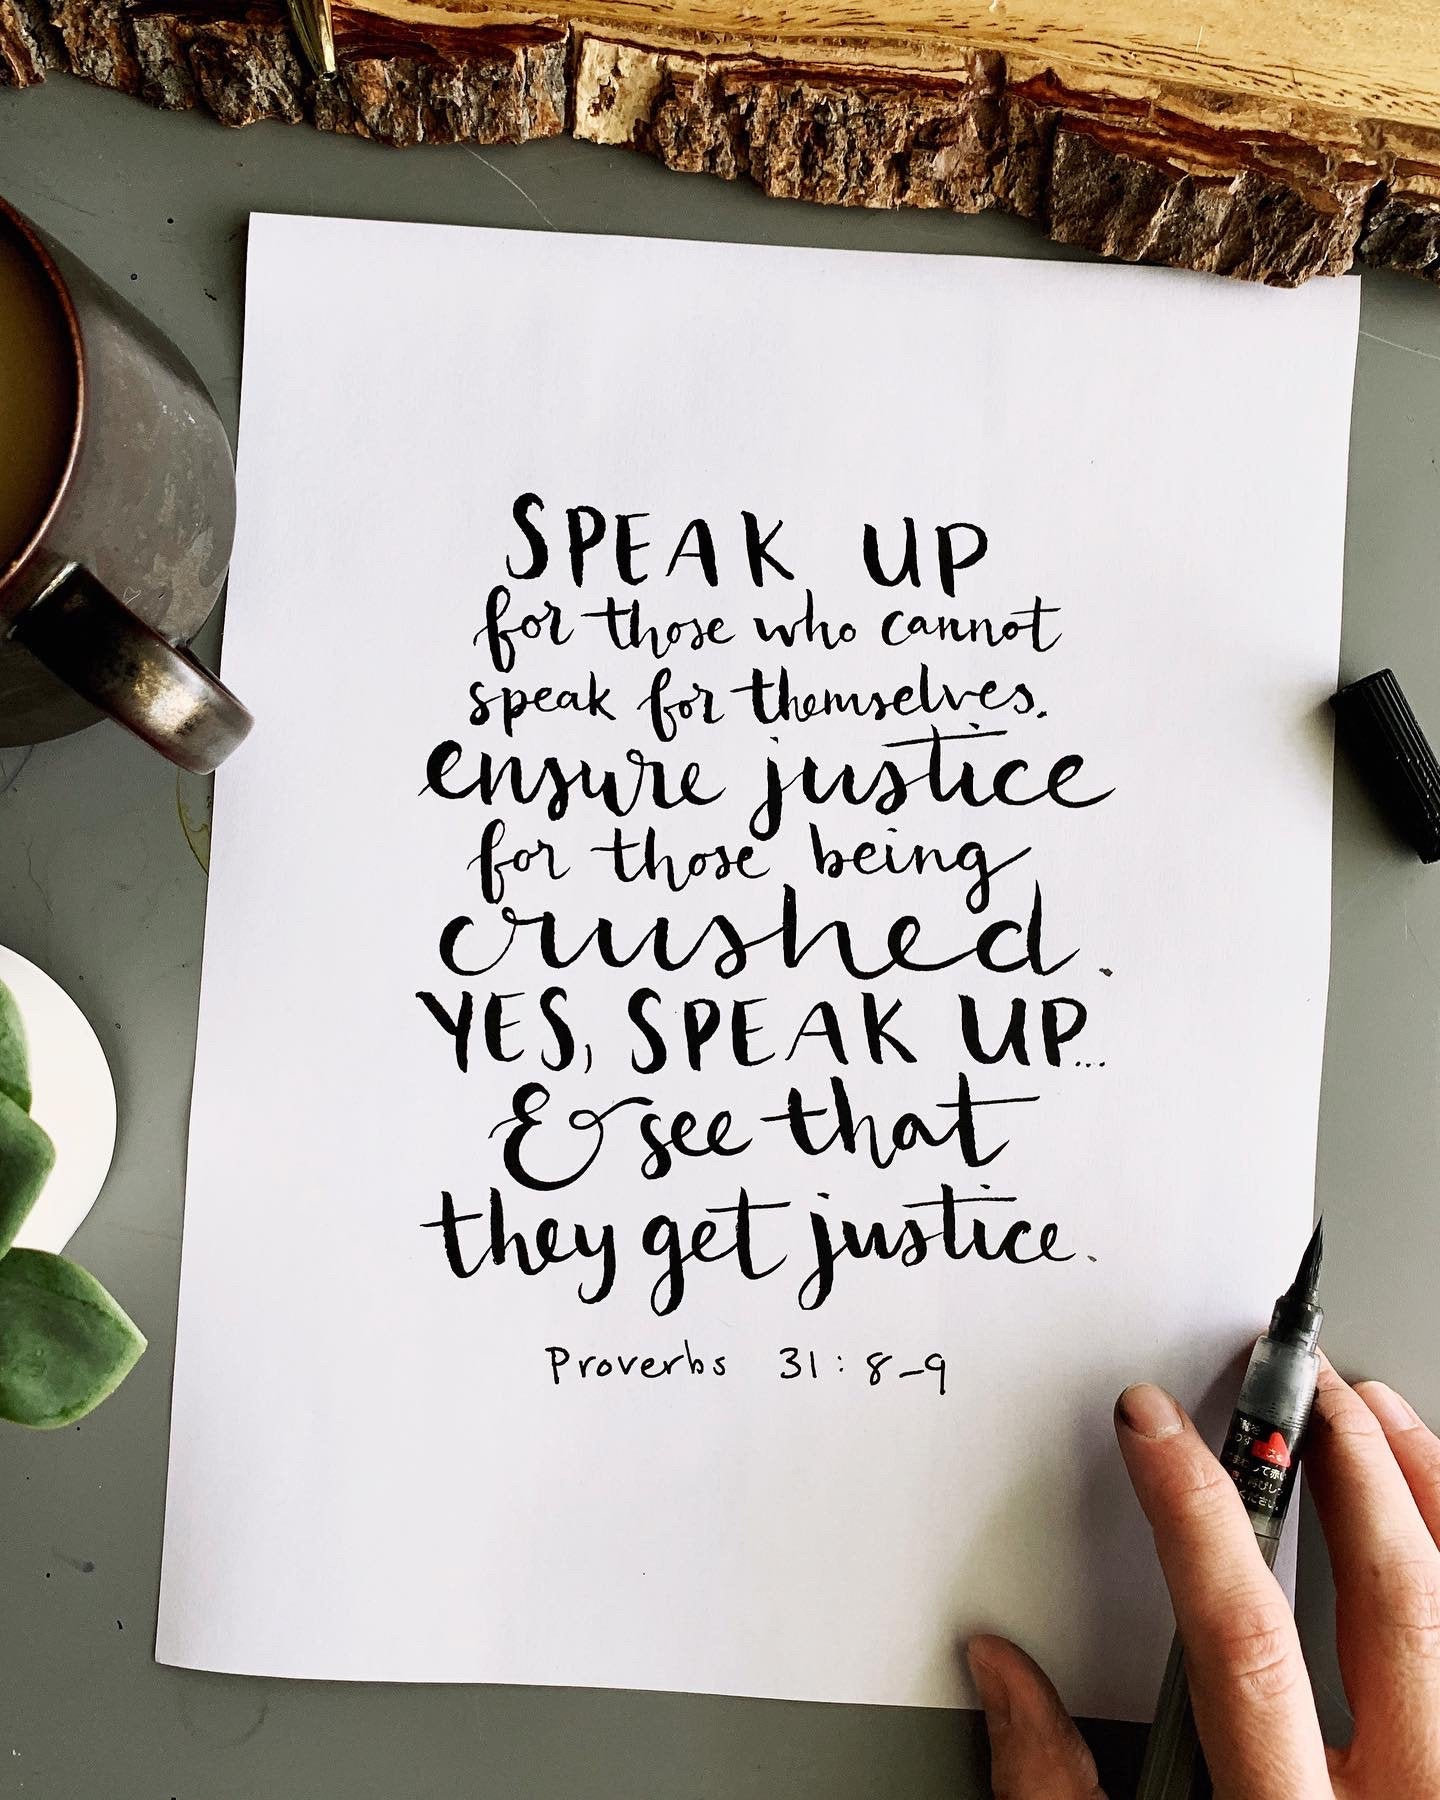 SPEAK UP
for those who cannot
speak for themselves.
ensure justice
for those being
crushed.
YES, SPEAK UP...
& see that
they get justice.
Proverbs 31:8-9